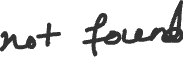 not found